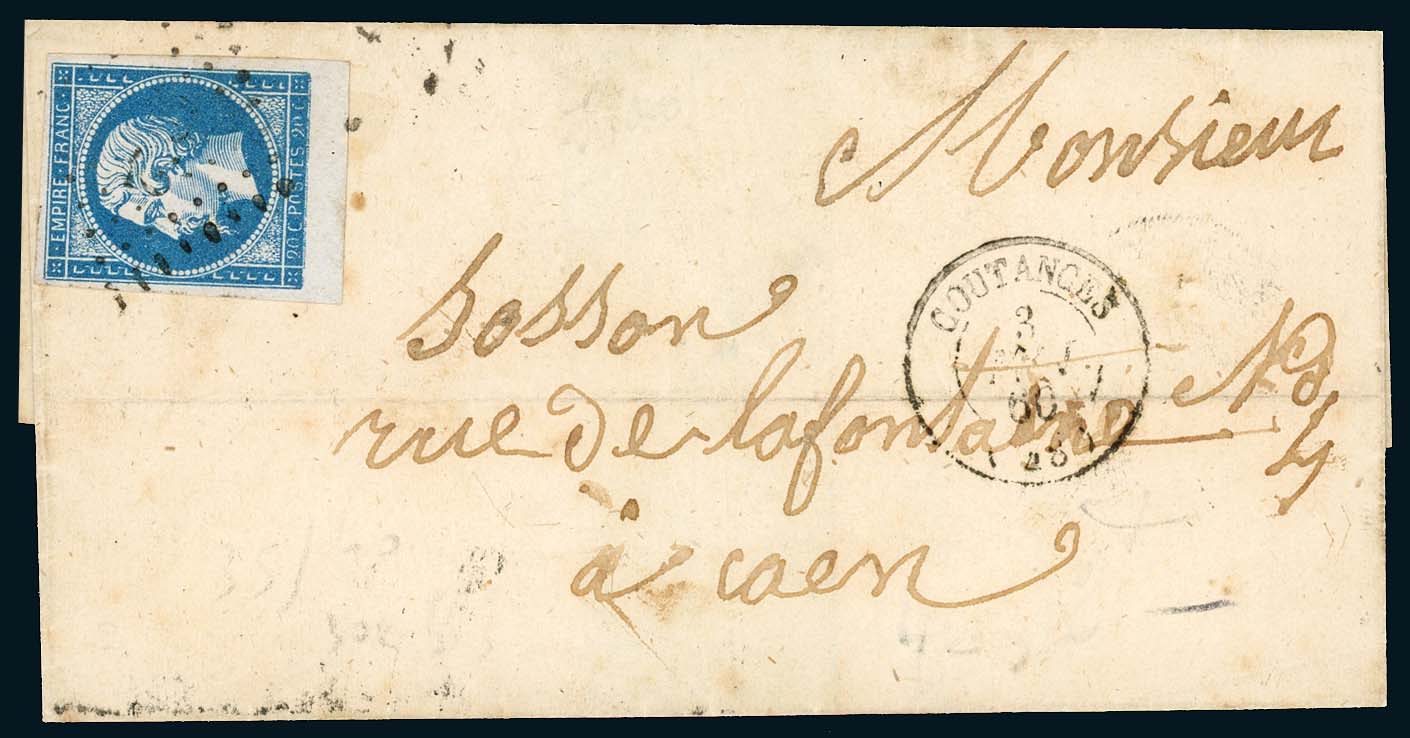 EMPIRE FRANC
20 C POSTES 20 C
Monsieur
COUTANCES
3
60
sosson
rue de lafontaine No
4
à caen